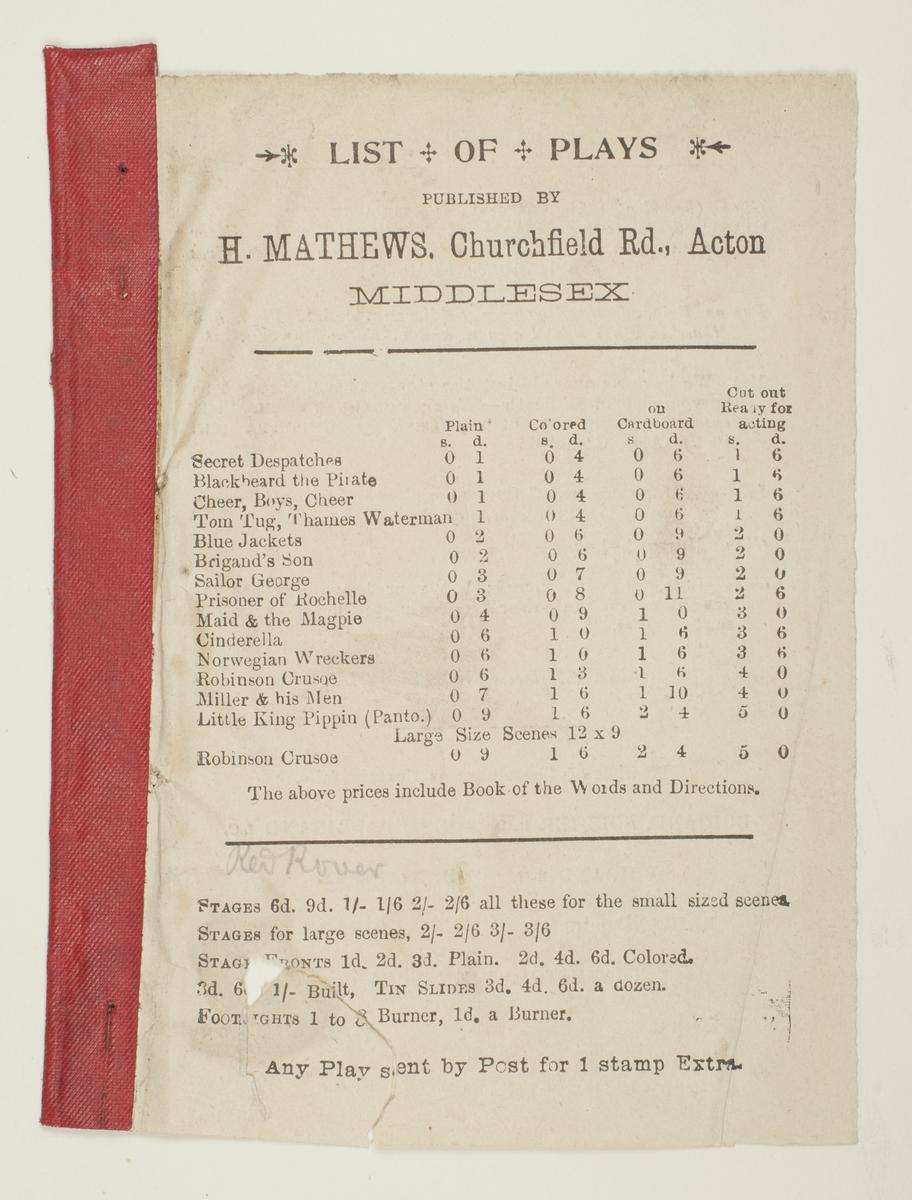 LIST OF PLAYS
PUBLISHED BY
H. MATHEWS. Churchfield Rd., Acton
MIDDLESEX
Plain Co'ored on Cardboard Cut out Ready for acting
s. d. s. d. s d. s. d.
Secret Despatches 0 1 0 4 0 6 1 6
Blackbeard the Pirate 0 1 0 4 0 6 1 6
Cheer, Boys, Cheer 0 1 0 4 0 6 1 6
Tom Tug, Thames Waterman 1 0 4 0 6 1 6
Blue Jackets 0 2 0 6 0 9 2 0
Brigand's Son 0 2 0 6 0 9 2 0
Sailor George 0 3 0 7 0 9 2 0
Prisoner of Rochelle 0 3 0 8 0 11 2 6
Maid & the Magpie 0 4 0 9 1 0 3 0
Cinderella 0 6 1 0 1 6 3 6
Norwegian Wreckers 0 6 1 0 1 6 3 6
Robinson Crusoe 0 6 1 3 1 6 4 0
Miller & his Men 0 7 1 6 1 10 4 0
Little King Pippin (Panto.) 0 9 1 6 2 4 5 0
Large Size Scenes 12 x 9
Robinson Crusoe 0 9 1 6 2 4 5 0
The above prices include Book of the Words and Directions.
Red Rover
STAGES 6d. 9d. 1/- 1/6 2/- 2/6 all these for the small sized scenes
STAGES for large scenes, 2/- 2/6 3/- 3/6
STAGE FRONTS 1d. 2d. 3d. Plain. 2d. 4d. 6d. Colored.
3d. 6 1/- Built, TIN SLIDES 3d. 4d. 6d. a dozen.
FOOTLIGHTS 1 to 8 Burner, 1d. a Burner.
Any Play sent by Post for 1 stamp Extra.